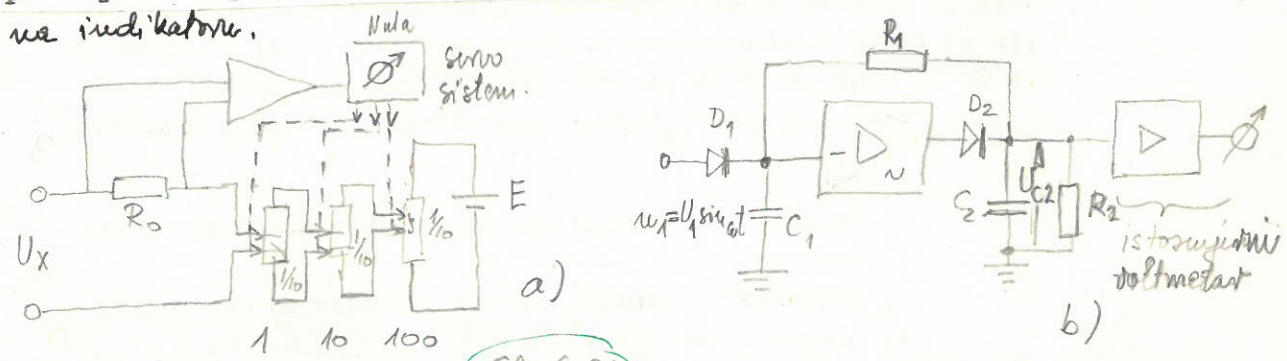 na indikatoru.
Nula
servo
sistem.
R₀
Uₓ
1/10
1/10
1/10
E
1 10 100
a)
R₁
D₁
D₂
u₁=U₁sinωt
C₁
-
N
C₂
U_C2
R₂
istosmjerni
voltmetar
b)